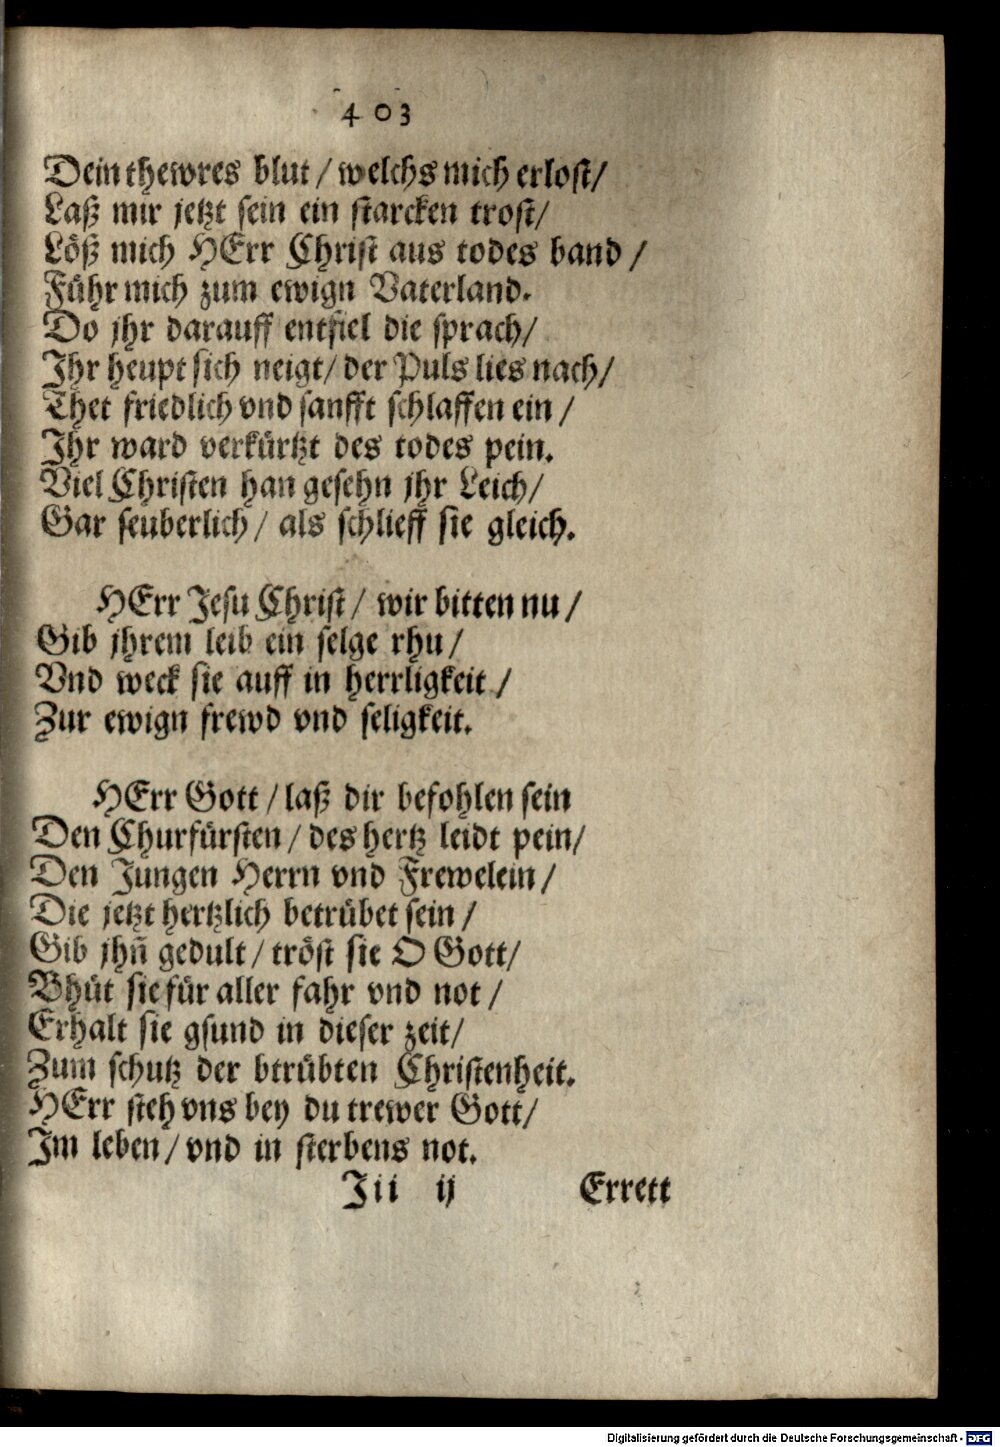 403
Dein thewres blut / welchs mich erlost /
Laß mir jetzt sein ein starcken trost /
Löß mich HErr Christ aus todes band /
Führ mich zum ewign Vaterland.
Do jhr darauff entfiel die sprach /
Ihr heupt sich neigt / der Puls lies nach /
Thet friedlich vnd sanfft schlaffen ein /
Ihr ward verkürtzt des todes pein.
Viel Christen han gesehn jhr Leich /
Gar seuberlich / als schlieff sie gleich.
HErr Jesu Christ / wir bitten nu /
Gib jhrem leib ein selge rhu /
Vnd weck sie auff in herrligkeit /
Zur ewign frewd vnd seligkeit.
HErr Gott / laß dir befohlen sein
Den Churfürsten / des hertz leidt pein /
Den Jungen Herrn vnd Frewelein /
Die jetzt hertzlich betrübet sein /
Gib jhn̄ gedult / tröst sie O Gott /
Bhüt sie für aller fahr vnd not /
Erhalt sie gsund in dieser zeit /
Zum schutz der btrübten Christenheit.
HErr steh vns bey du trewer Gott /
Im leben / vnd in sterbens not.
Iii ij Errett
Digitalisierung gefördert durch die Deutsche Forschungsgemeinschaft - DFG